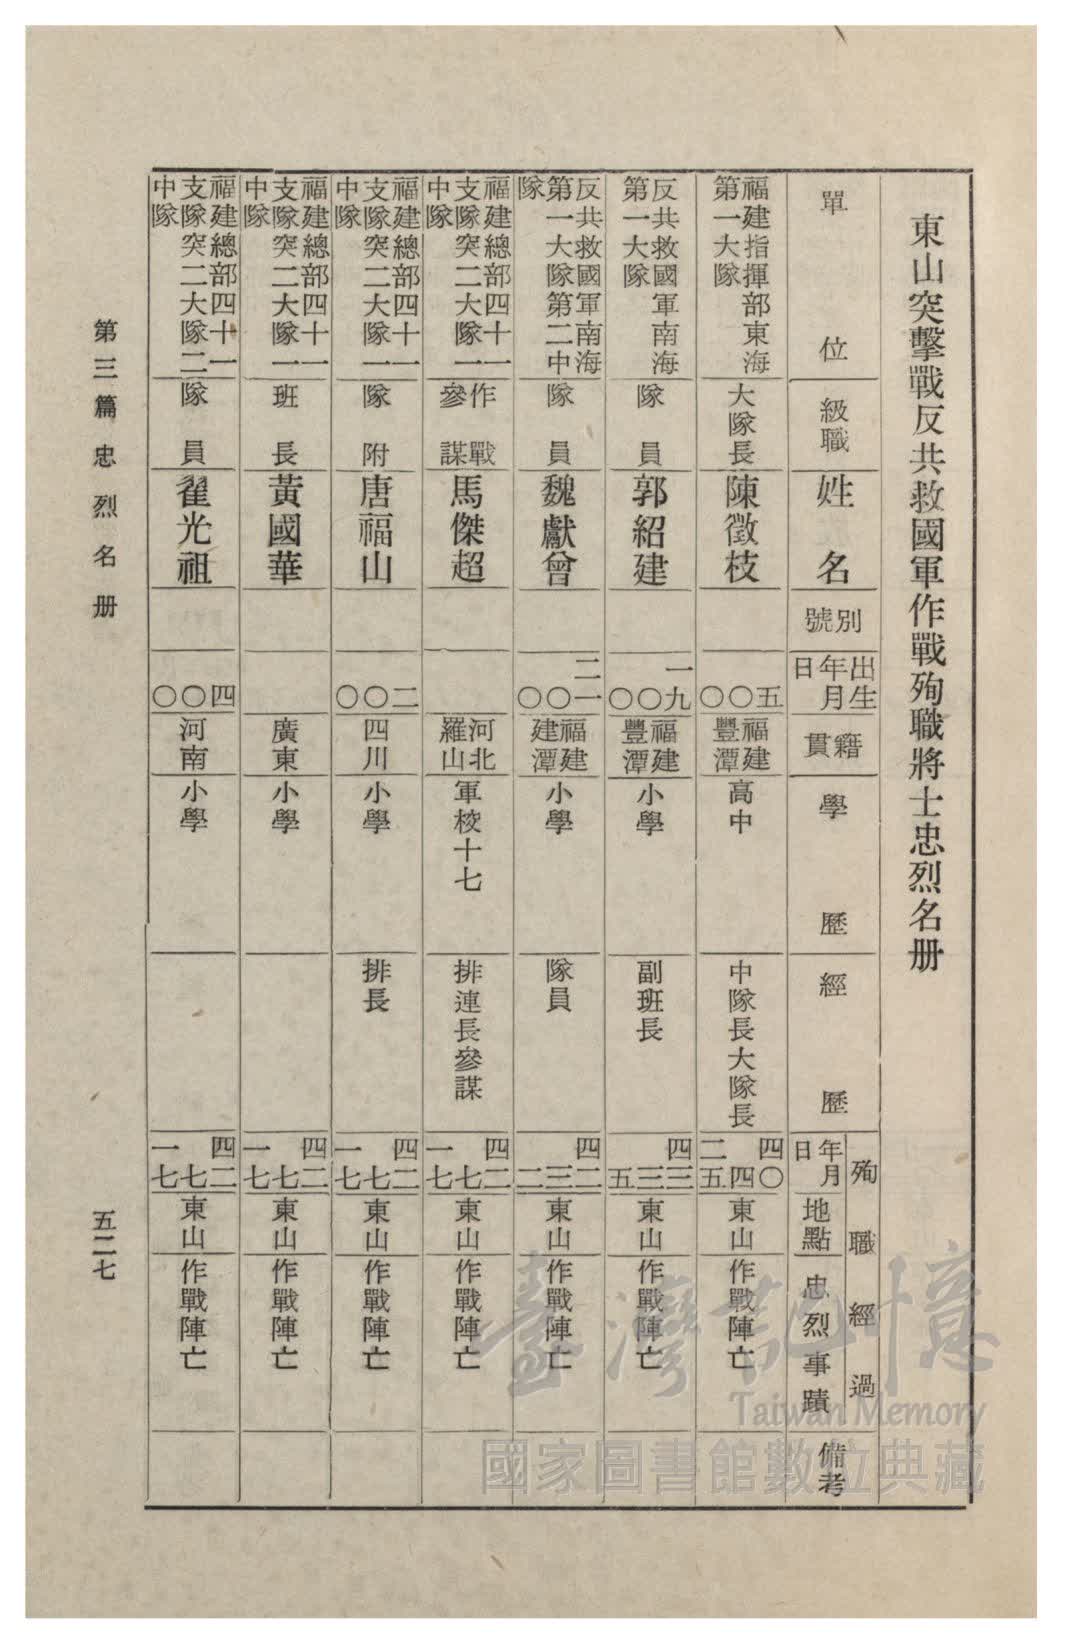 東山突擊戰反共救國軍作戰殉職將士忠烈名册
單位
級職
姓名
別號
出生年月日
籍貫
學歷
經歷
殉職經過
年月日
地點
忠烈事蹟
備考
福建指揮部東海
第一大隊
大隊長
陳徵枝
五〇〇
福建
豐潭
高中
中隊長大隊長
四〇
四
二五
東山
作戰陣亡
反共救國軍南海
第一大隊
隊員
郭紹建
一九〇〇
福建
豐潭
小學
副班長
四三
三
五
東山
作戰陣亡
反共救國軍南海
第一大隊第二中
隊
隊員
魏獻曾
一
〇
二〇
福建
建潭
小學
隊員
四二
三
二
東山
作戰陣亡
福建總部四十一
支隊突二大隊一
中隊
作戰
參謀
馬傑超
河北
羅山
軍校十七
排連長參謀
四二
七
一七
東山
作戰陣亡
福建總部四十一
支隊突二大隊一
中隊
隊附
唐福山
二〇〇
四川
小學
排長
四二
七
一七
東山
作戰陣亡
福建總部四十一
支隊突二大隊一
中隊
班長
黃國華
廣東
小學
四二
七
一七
東山
作戰陣亡
福建總部四十一
支隊突二大隊二
中隊
隊員
翟光祖
四〇〇
河南
小學
四二
七
一七
東山
作戰陣亡
第三篇 忠烈名册
五二七
臺灣記憶
Taiwan Memory
國家圖書館數位典藏